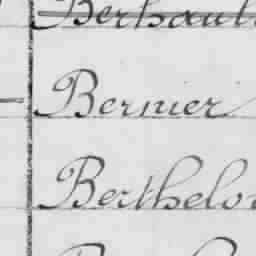 Berhaut
Bernier
Berthelo